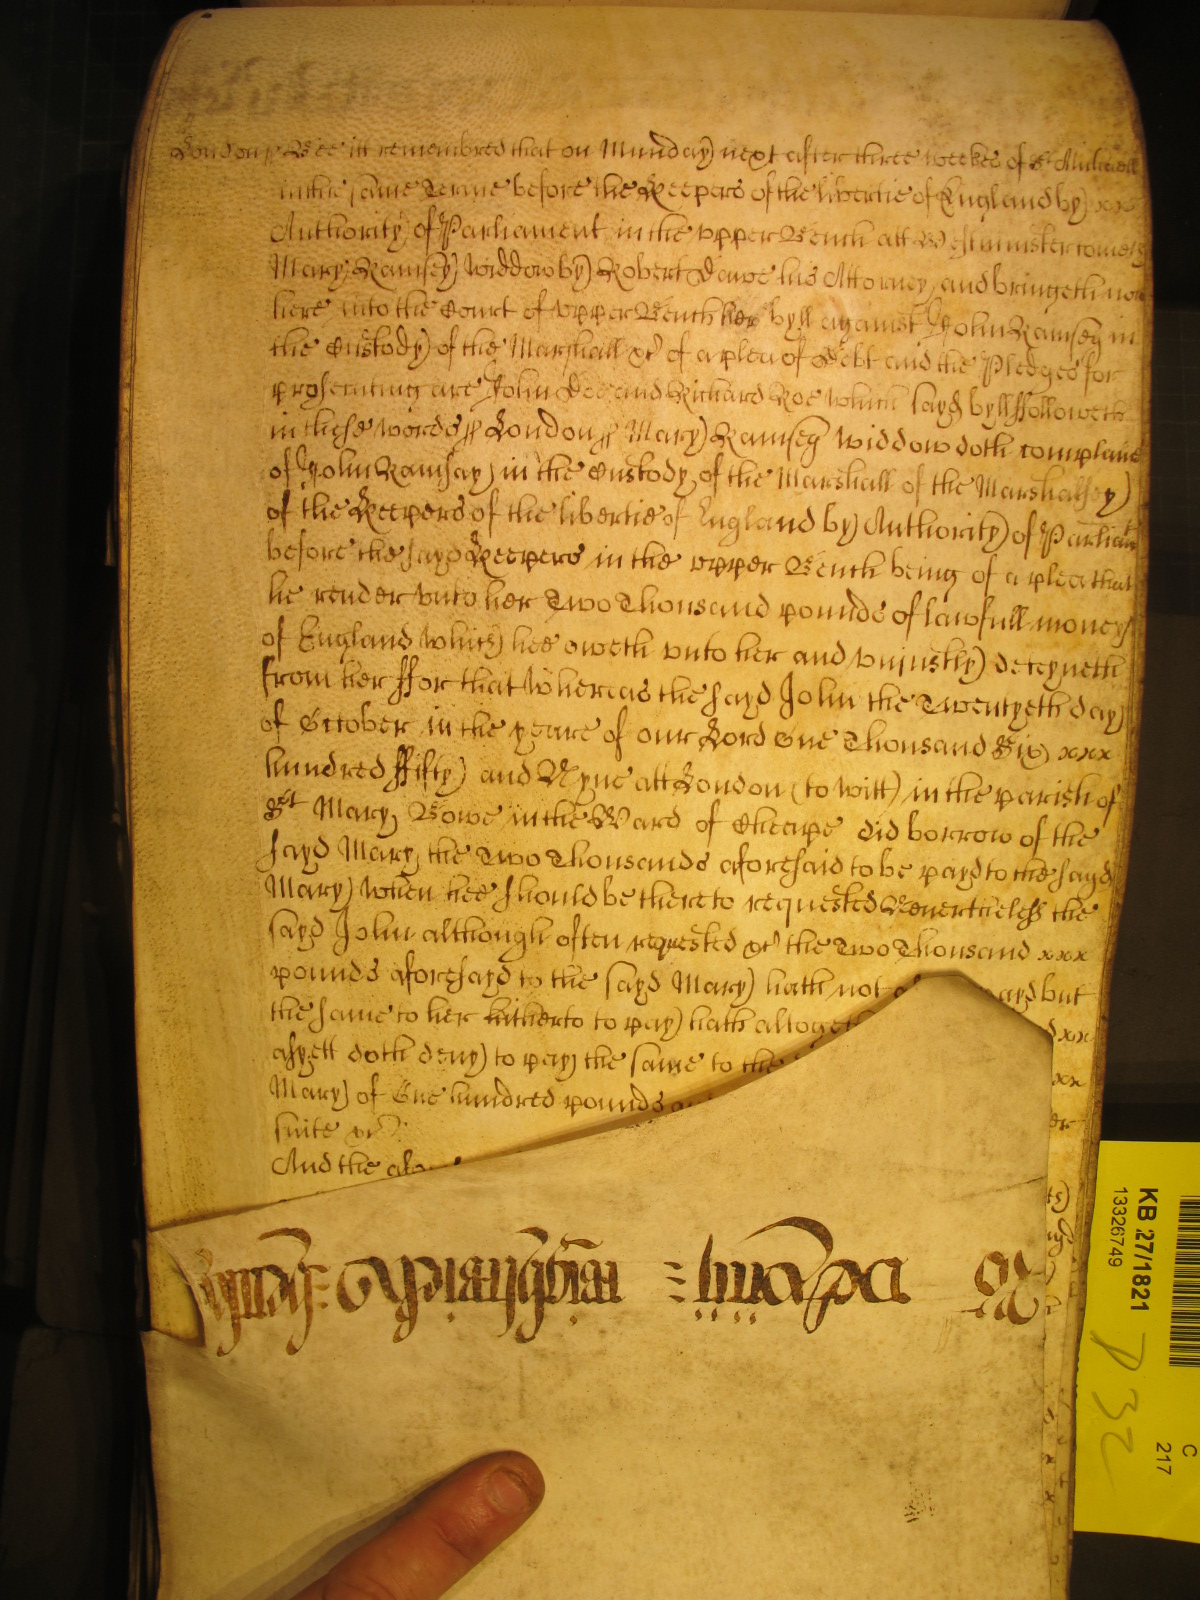 London ss Bee itt remembred that on Munday next after three weekes of St Michaell
in the same Terme before the Keepers of the libertie of England by xxx
Authority of Parliament in the vpper Bench att Westminster comes
Mary Ramsey Widdow by Robert Dawe his Attorney and bringeth now
here into the Court of vpper Bench her byll against John Ramsey in
the Custody of the Marshall &c of a plea of Debt and the Pledges for
prosecuting are John Doe and Richard Roe which sayd byll ffolloweth
in these words ss London ss Mary Ramsey Widdow doth complaine
of John Ramsay in the Custody of the Marshall of the Marshalsey
of the Keepers of the libertie of England by Authority of Parliamt
before the sayd Keepers in the vpper Bench being of a plea that
he render vnto her Two Thousand pounds of lawfull money
of England which hee oweth vnto her and vniustly deteyneth
from her ffor that Whereas the sayd John the Twentyeth day
of October in the yeare of our Lord One Thousand Six xxx
hundred ffifty and Nyne att London (to witt) in the parish of
St Mary Bowe in the Ward of Cheape did borrow of the
sayd Mary the Two Thousands aforesaid to be payd to the sayd
Mary When hee should be thereto requested Neuertheless the
sayd John although often requested &c the Two Thousand xxx
pounds aforesayd to the sayd Mary hath not ayd but
the same to her hitherto to pay hath altoget d xx
asyett doth deny to pay the same to the xx
Mary of One hundred pounds er
suite &c
And the afo
KB 27/1821
13326749
C
217
P 32